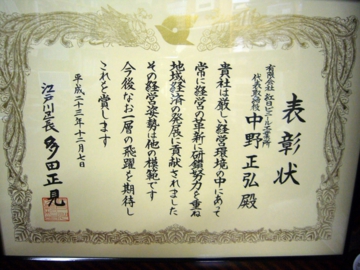 表彰状
有限会社 紅日ビニール工業所
代表取締役
中野正弘殿
貴社は厳しい経営環境の中にあって
常に経営の革新に研鑽努力を重ね
地域経済の発展に貢献されました
その経営姿勢は他の模範です
今後なお一層の飛躍を期待し
これを賞します
平成二十三年十二月七日
江戸川区長 多田正見